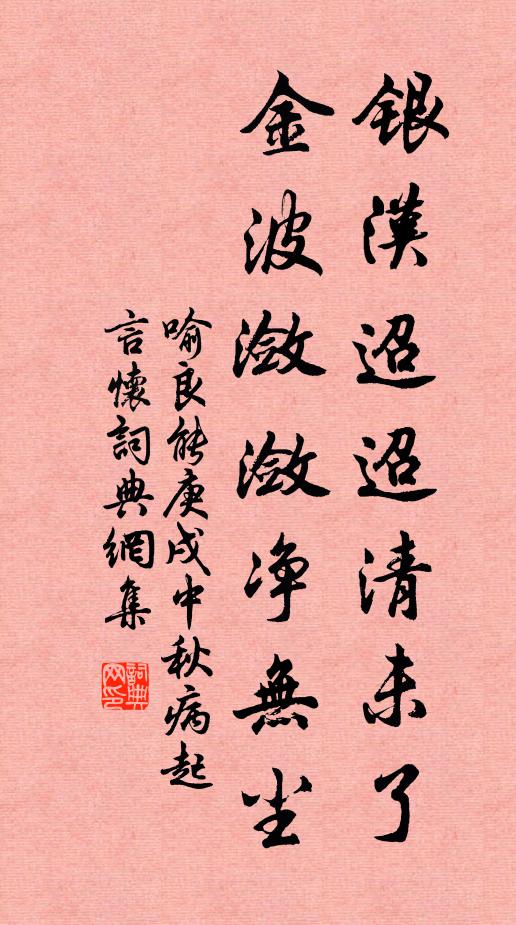 銀漢迢迢清未了
金波瀲瀲淨無尘
喻良能庚戌中秋病起
言懷詞典網集
詞典
网印